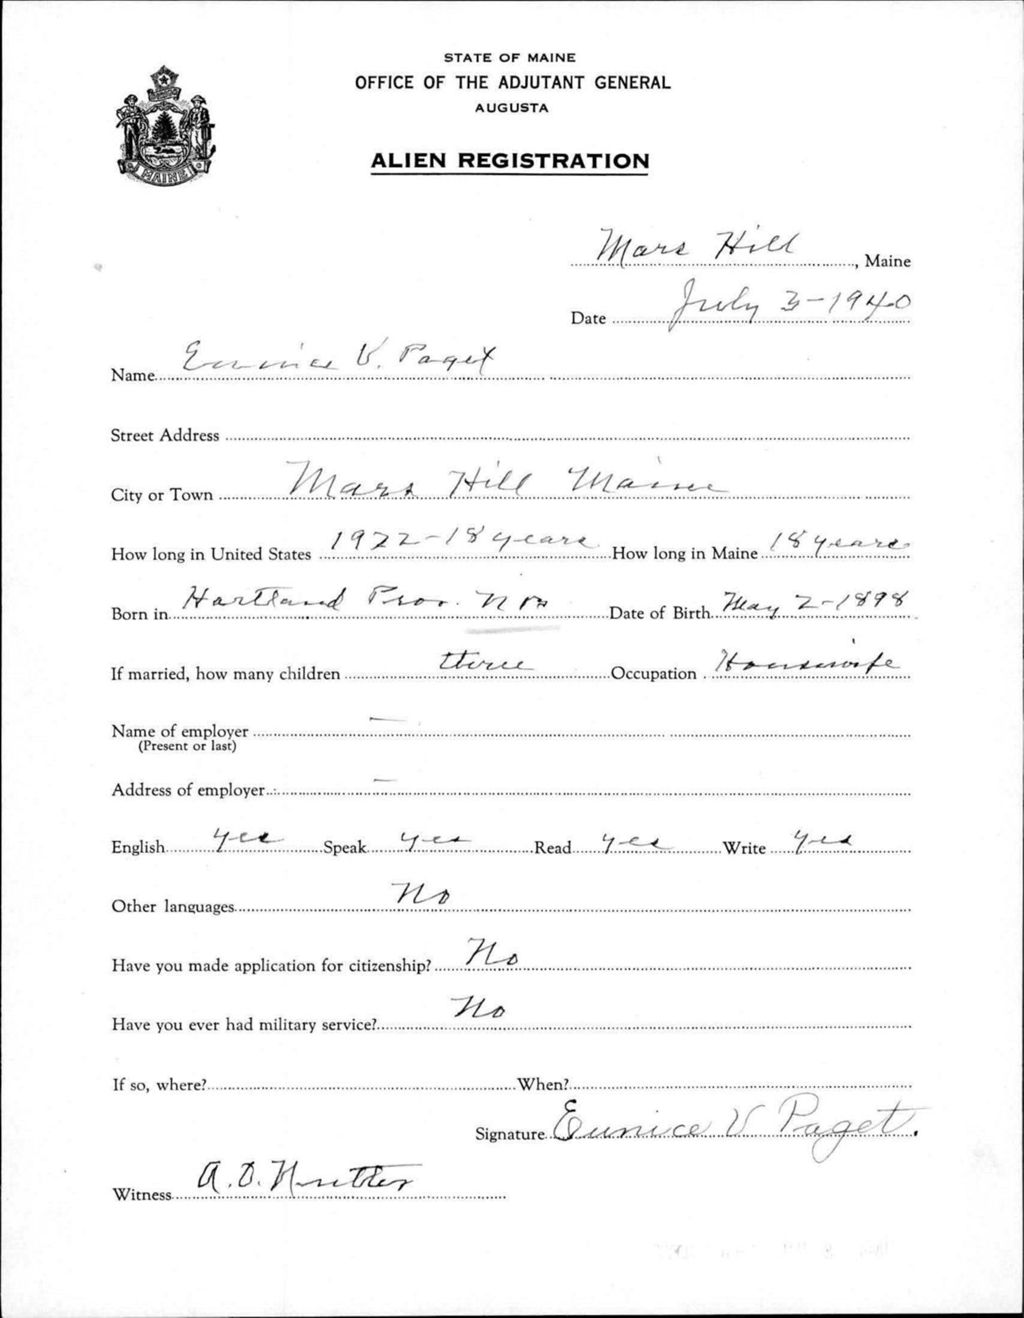 STATE OF MAINE
OFFICE OF THE ADJUTANT GENERAL
AUGUSTA
MAINE
ALIEN REGISTRATION
Mars Hill, Maine
Date July 3-1940
Name Eunice V. Paget
Street Address
City or Town Mars Hill Maine
How long in United States 1922-18 years How long in Maine 18 years
Born in Hartland Prov. N Date of Birth May 2-1898
If married, how many children three Occupation Housewife
Name of employer —
(Present or last)
Address of employer —
English yes Speak yes Read yes Write yes
Other languages No
Have you made application for citizenship? No
Have you ever had military service? No
If so, where? When?
Signature Eunice V Paget.
Witness A. D.